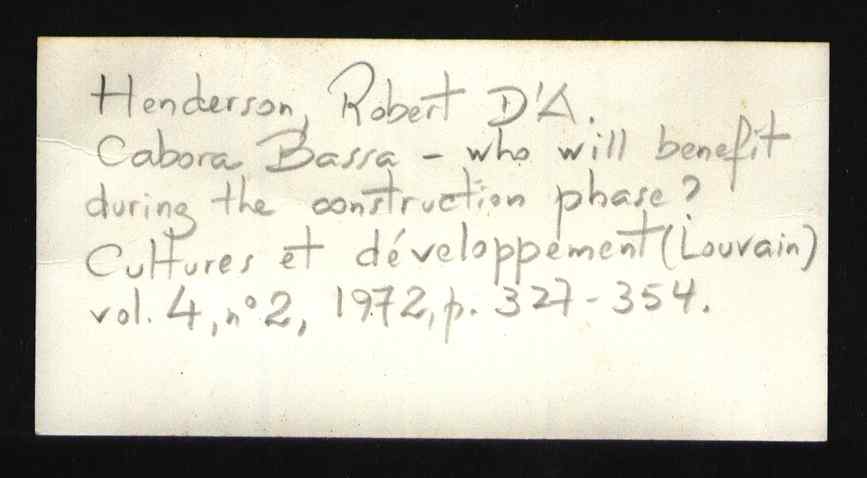 Henderson, Robert D'A.
Cabora Bassa - who will benefit
during the construction phase?
Cultures et développement (Louvain)
vol. 4, n° 2, 1972, p. 327-354.